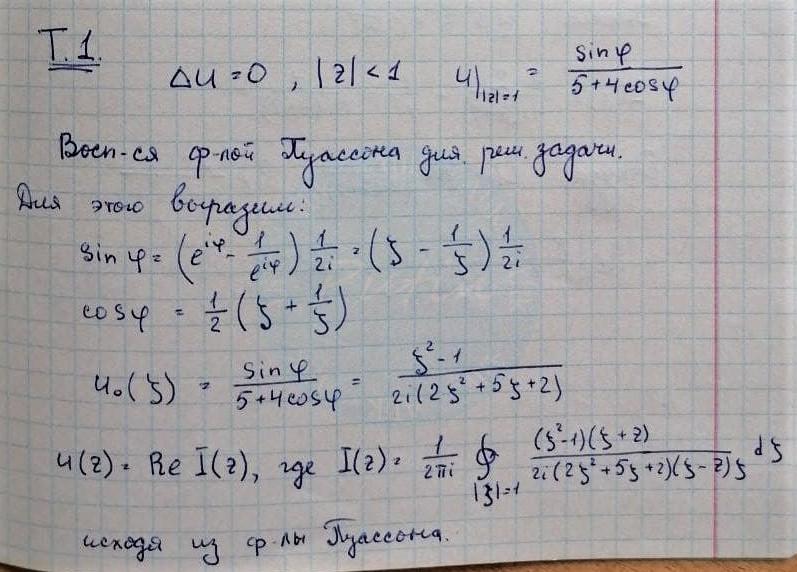 T.1.
Δu = 0 , |z| < 1 u|_{|z|=1} = \frac{sin φ}{5+4cosφ}
Восп-ся ф-лой Пуассона для реш. задачи.
Для этого выразим:
sin φ = (e^{iφ} - \frac{1}{e^{iφ}}) \frac{1}{2i} = (ζ - \frac{1}{ζ}) \frac{1}{2i}
cos φ = \frac{1}{2} (ζ + \frac{1}{ζ})
u₀(ζ) = \frac{sin φ}{5+4cosφ} = \frac{ζ²-1}{2i(2ζ²+5ζ+2)}
u(z) = Re I(z), где I(z) = \frac{1}{2πi} ∮_{|ζ|=1} \frac{(ζ²-1)(ζ+z)}{2i(2ζ²+5ζ+2)(ζ-z)ζ} dζ
исходя из ф-лы Пуассона.